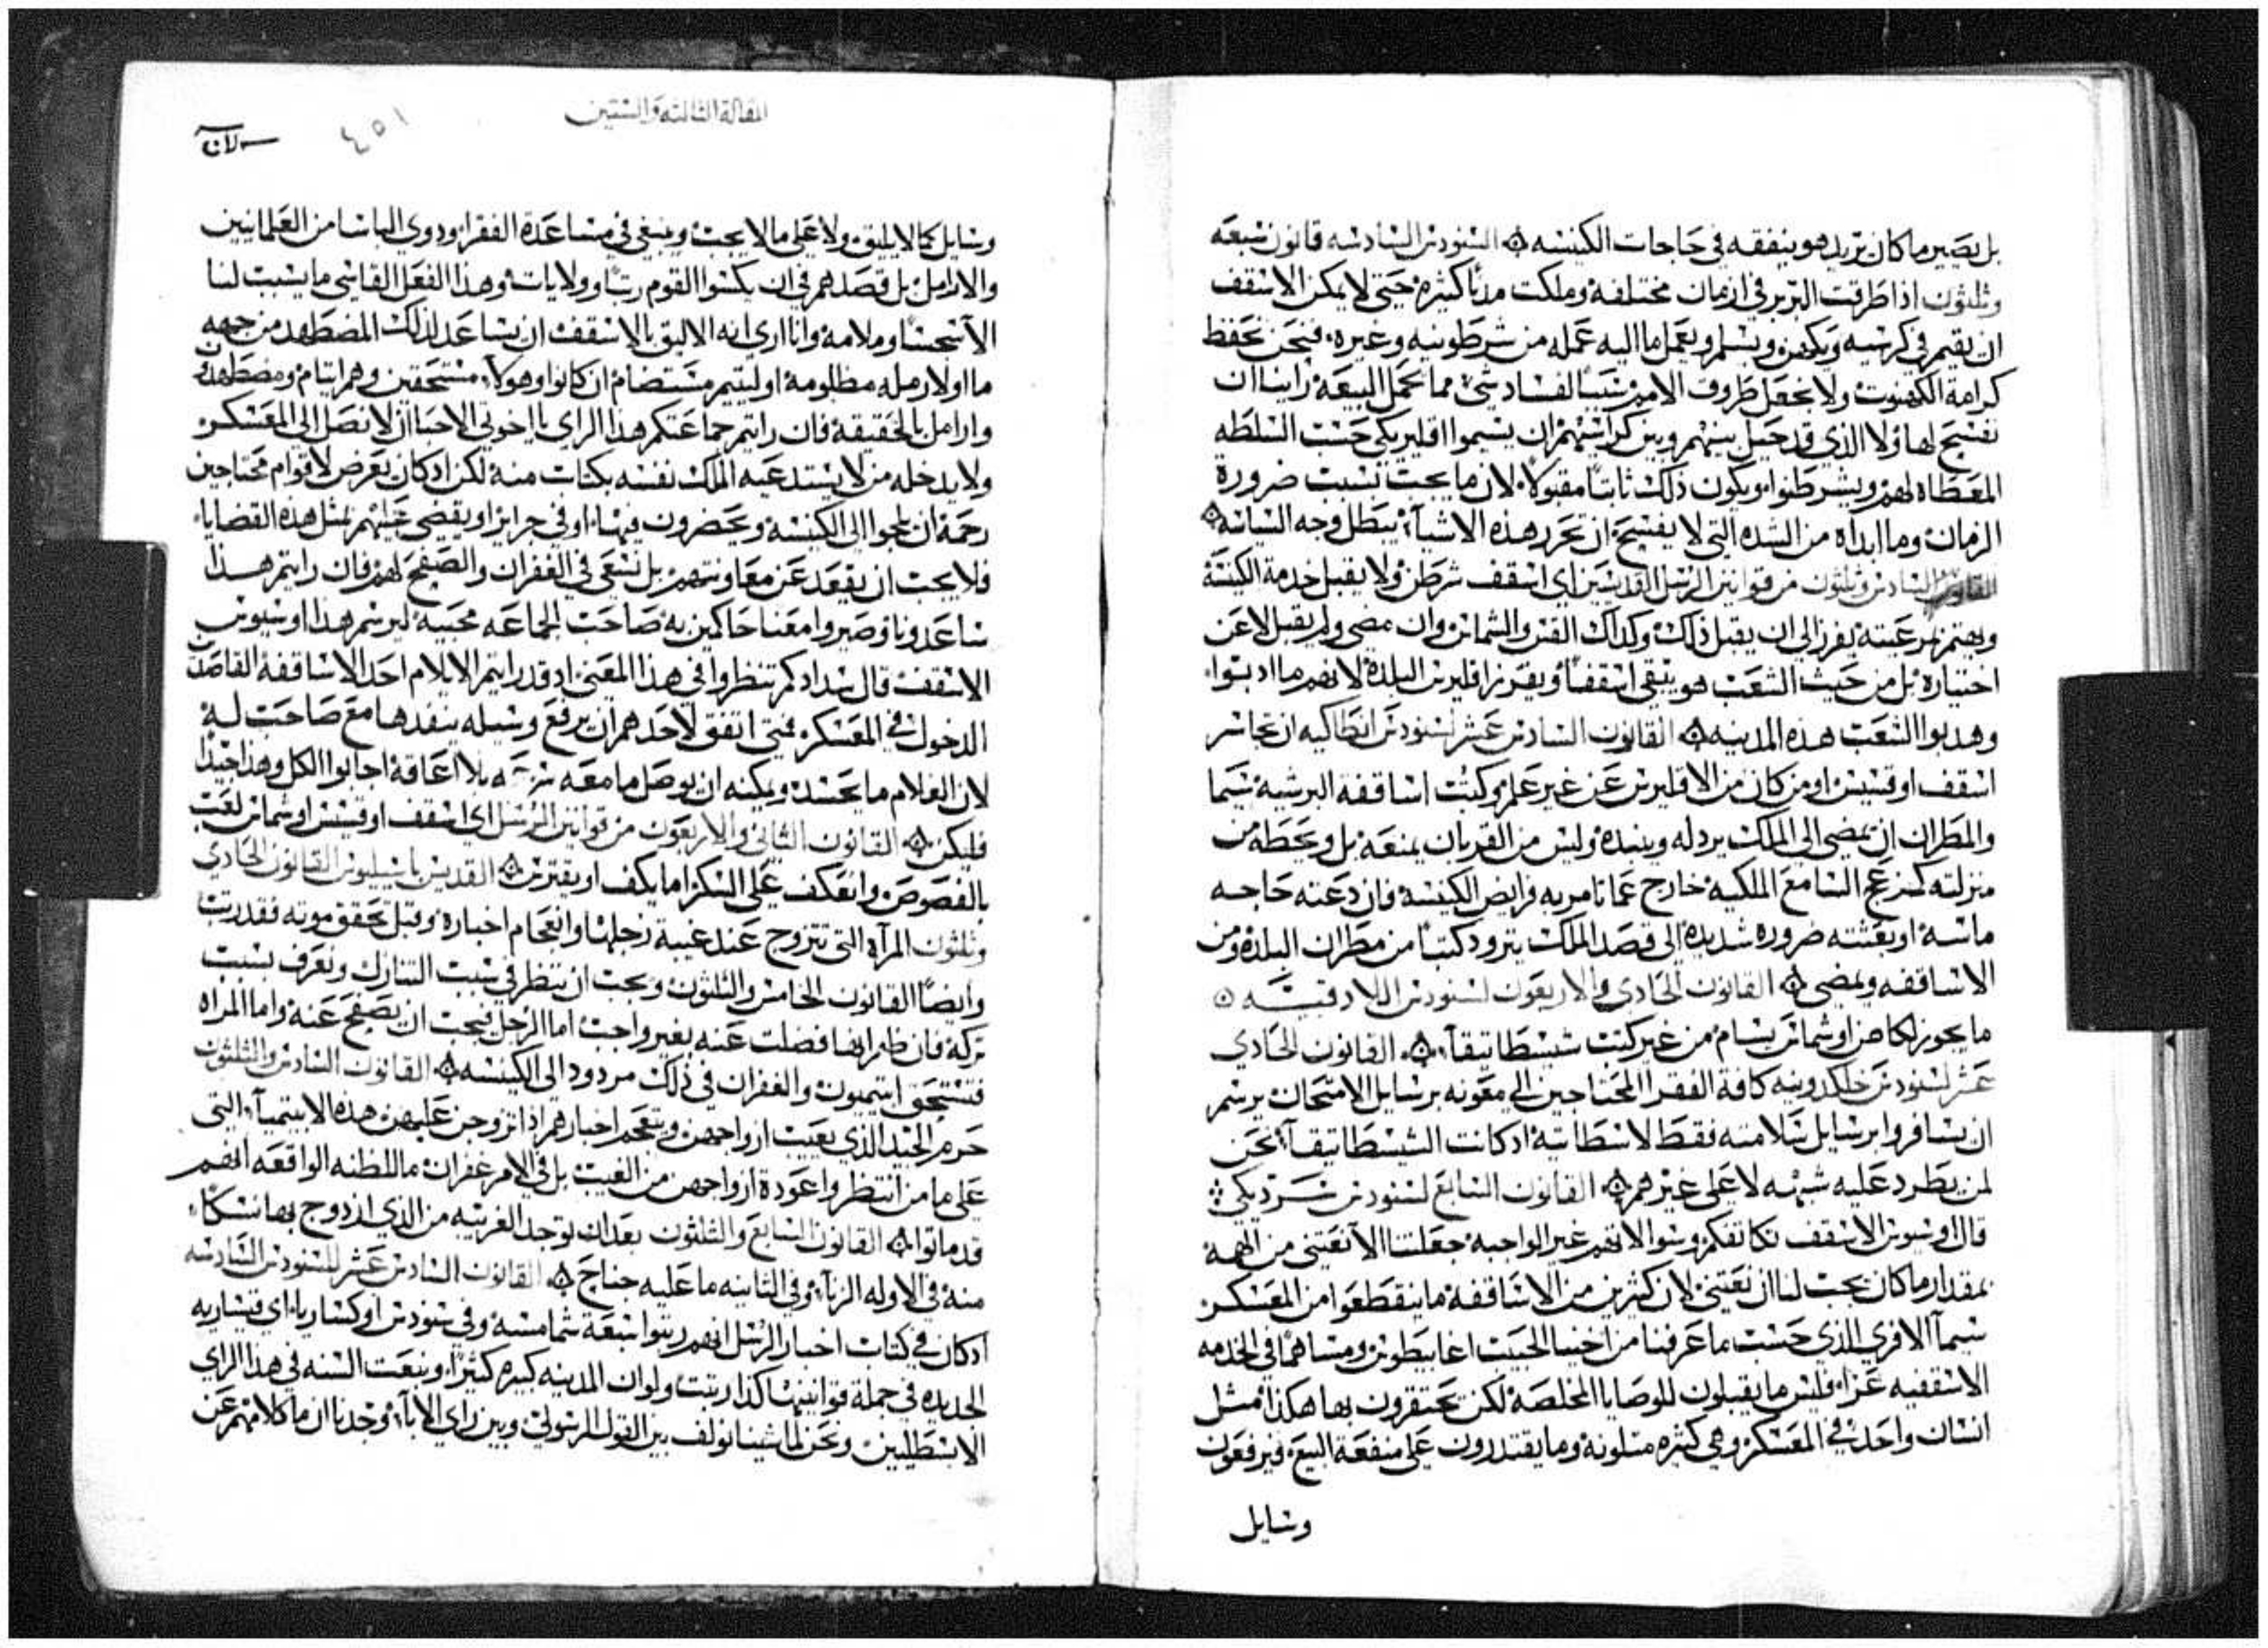 بل يصير ما كان يريد هو ينفقه في حاجات الكنيسه السنودس السادسه قانون سبعه
وثلثون اذا طرقت البربر في ازمان مختلفة وملكت مدنًا كثيره حتى لا يمكن الاسقف
ان يقيم في كرسيه ويكهن ويسلم ويعمل ما اليه عمله من شرطونيه وغيره، فنحن نحفظ
كرامة الكهنوت ولا نجعل ظروف الامور سببًا لفساد شيء مما يجمل البيعة راينا ان
نفسح لهاولا الذي قد حيل بينهم وبين كراسيهم ان يسموا اقليريكي حسب السلطه
المعطاه لهم ويشرطنوا، ويكون ذلك ثابتًا مقبولًا، لان ما يجب بسبب ضرورة
الزمان وما ابداه من الشده التي لا يفسح ان تحرر هذه الاشيآء يبطل وجه السياسه
القانون السادس وثلثون من قوانين الرسل القديسين اي اسقف شرطن ولا يقبل خدمة الكنيسة
ويهتم برعيته يفرز الى ان يقبل ذلك وكذلك القس والشماس وان مضى ولم يقبل لا عن
اختياره بل من حيث الشعب هو يبقى اسقفًا ويفرز اقليرس البلدة لانهم ما ادبوا،
وهدبوا الشعب هذه المدينه القانون السادس عشر لسنودس انطاكيه ان تجاسر
اسقف او قسيس او من كان من الاقليرس عن غير علم وكتب اساقفة البرشيه سيما
والمطران ان يمضي الى الملك يردله وينبده وليس من القربان يمنعه بل ويحطه من
منزلته كمزعج السامع الملكية خارج عما تامر به فرايض الكنيسة فان دعته حاجه
ماسه او بعثته ضروره شديده الى قصد الملك يتزود كتبًا من مطران البلده ومن
الاساقفه ويمضي القانون الحادي والاربعون لسنودس اللادقيه
ما يجوز لكاهن او شماس يسام من غير كتب شيسطاتيقآء القانون الحادي
عشر لسنودس خلكدونيه كافة الفقرا المحتاجين الى معونه برسايل الامتحان برسم
ان يسافروا برسايل سلامته فقط لا سطاتية اد كانت الشيسطاتيقآء نحن
لمن يطرد عليه شبهه لا على غيرهم القانون السابع لسنودس سرديكي
قال اوسيوس الاسقف نكاتفكم وسوالاتهم غير الواجبه جعلتنا الا نعتني من المهة
بمقدار ما كان يجب لنا ان نعتني لان كثيرين من الاساقفة ما ينقطعوا من المعسكر
سيمآ الافري الذي حسب ما عرفنا من اخينا الحبيب اغابيطوس ومساهمًا في الخدمه
الاسقفيه عزآء فليس ما يقبلون للوصايا المخلصة لكن يحتقرون بها هكذا مثل
انسان واحد في المعسكر وهي كثيره متلونة وما يقتدرون على منفعة البيع، فيرفعون
وسايل
المقالة الثالثه والستين
٤٥١
وسايل كما لا يليق ولا على ما لا يجب وينبغي في مساعدة الفقرا، ودوي الباسا من العلمانيين
والارامل بل قصدهم في ان يكسوا القوم رتبًا وولايات وهذا الفعل القاسي ما يسبب لنا
الا سجسًا وملامة وانا ارى انه الاليق بالاسقف ان يساعد لذلك المضطهد من جهه
ما اولا رمله مظلومة او ليتيم مستضام ان كانوا وهولآء مستحقين وهم ايتام ومضطهدون
وارامل بالحقيقة فان رايتم جماعتكم هذا الراي يا اخوتي الاحبا ان لا نصل الى المعسكر
ولا يدخله من لا يستدعيه الملك نفسه بكتاب منه لكن اد كان يعرض لاقوام محتاجين
رحمة ان يلجوا الى الكنيسة ويحضرون فيها، او في جراير او يقضى عليهم بمثل هذه القضايا،
فلا يجب ان يقعد عن معاونتهم بل نسعى في الغفران والصفح لهم فان رايتم هذا
ساعدونا وصيروا معنا حاكمين به صاحت الجماعه محبيه ليرسم هذا اوسيوس
الاسقف قال سدادكم تنظروا في هذا المعنى اد قد رايتم الا يلام احد الاساقفة القاصدين
الدخول في المعسكر، فمتى اتفق لاحدهم ان يرفع وسيله ينفدها مع صاحب له
لان الغلام ما يحسد ويمكنه ان يوصل ما معه بلا اعاقة اجابوا الكل وهذا جيدًا
فليكن القانون الثاني والاربعون من قوانين الرسل اي اسقف او قسيس او شماس لعب
بالفصوص وانعكف على السكر اما يكف او يقترس القديس باسيليوس القانون الحادي
وثلثون المرآة التي تتزوج عند غيبة رجلها وانعجام اخباره وقبل تحقق موته فقد رتب
وايضًا القانون الخامس والثلثون ويجب ان ينظر في سبب التارك ونعرف بسبب
تركه فان ظهر انها فصلت عنه بغير واجب اما الرجل فيجب ان يصفح عنه واما المراه
فتستحق ابتيميون والغفران في ذلك مردود الى الكنيسه القانون السادس والثلثون
حرم الجند الذي يغيب ازواجهن وتنعجم اخبارهم اذا تزوجن عليهن هذه الابيتيميآء التي
على ما من انتظروا عودة ازواجهن من الغيب بل في الامر غفران ما للظنه الواقعه انهم
قد ماتوا القانون السابع والثلثون بعد ان توجد الغريبه من الذي ازدوج بها نسكًا،
منه في الاوله الزنآء وفي الثانيه ما عليه جناح القانون السادس عشر للسنودس السادسه
ادكان في كتاب اخبار الرسل انهم رتبوا سبعة شمامسة وفي سنودس اوكساريا، اي قيساريه
الجديده في جملة قوانينها كذا رتبت ولو ان المدينه كبيره كثيرًا، وينعت السنه في هذا الراي
الابسطليين ونحن لما شينا نولف بين القول الرسولي وبين راي الابآء وجدنا ان ما كلامهم عن